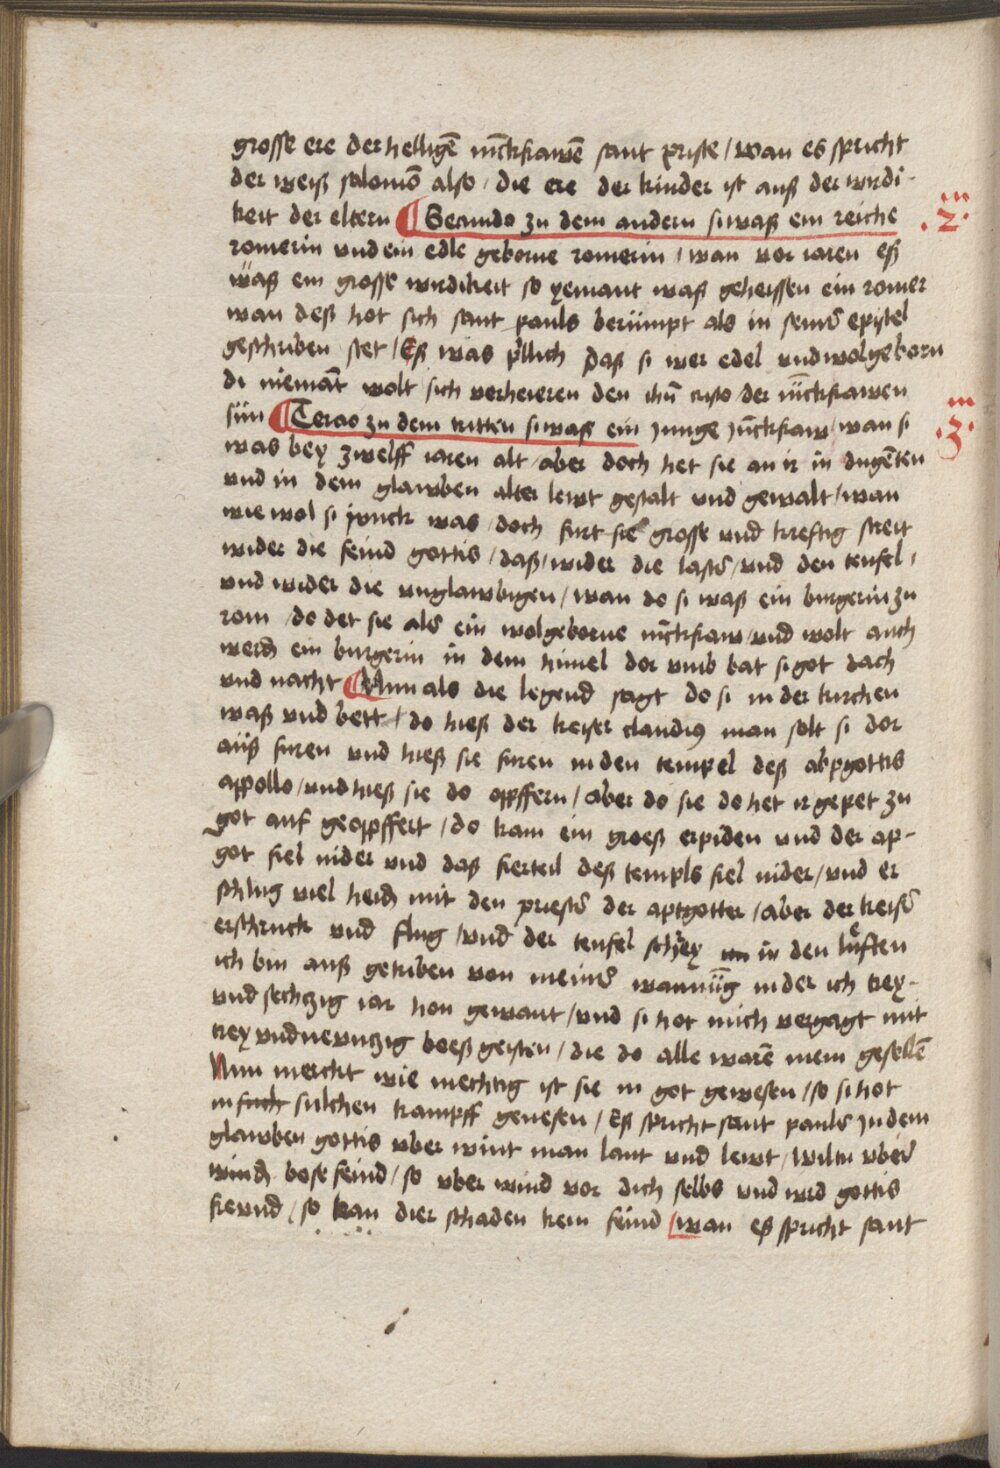 grosse ere der helligē iūckfrawē sant priske / wan es spricht
der weiß salomō also / die ere der kinder ist auß der wirdi-
keit der eltern ¶ Secundo zu dem andern si waß ein reiche
.2.
romerin vnd ein edle geborne romerin / wan vor iaren eß
waß ein grosse wirdikeit so yemant waß geheissen ein romer
wan deß hot sich sant pauls berümpt als in seiner epistel
geschriben stet / Eß was pillich daß si wer edel vnd wolgeborn
di niemāt wolt sich verheieren den ihū cristo der iūckfrawen
sün ¶ Tercio zu dem tritten si waß ein junge jūckfraw / wan si
.3.
was bey zwelff iaren alt / aber doch het sie an ir in dugēten
vnd in dem glawben alter lewt gestalt vnd gewalt / wan
wie wol si junck was / doch furt sie grosse vnd kreftig streit
wider die feind gottis / daß / wider die laster / vnd den teufel /
vnd wider die vnglawbigen / wan do si waß ein burgerin zu
rom / do det sie als ein wolgeborne iūckfraw / vnd wolt auch
werden ein burgerin in dem himel dor vmb bat si got dach
vnd nacht ¶ Nun als die legend sagt do si in der kirchen
waß vnd bett / do hieß der keiser claudius man solt si dor
auß furen vnd hieß sie furen in den tempel deß abpgottis
appollo / vnd hieß sie do opffern / aber do sie do het ir gepet zu
got auf geopffert / do kam ein groeß erpiden vnd der ap-
got fiel nider vnd daß fierteil deß templs fiel nider / vnd er
schlug viel heiden mit den priester der aptgotter / aber der keiser
erschrack vnd flug / vnd der teufel schrey in den lüften
ich bin auß getriben von meiner wannūg in der ich trey-
vnd sechzig iar hon gewant / vnd si hot mich veryagt mit
trey vnd newnzig boeß geisten / die do alle warē mein gesellē
Nun merckt wie mechtig ist sie in got gewesen / so si hot
in such sulchen kampff genesen / Eß spricht sant pauls in dem
glawben gottis vber wint man lant vnd lewt / wiltu vber
winden bose feind / so vber wind vor dich selbs vnd wird gottis
freund / so kan dier schaden kein feind / wan eß spricht sant